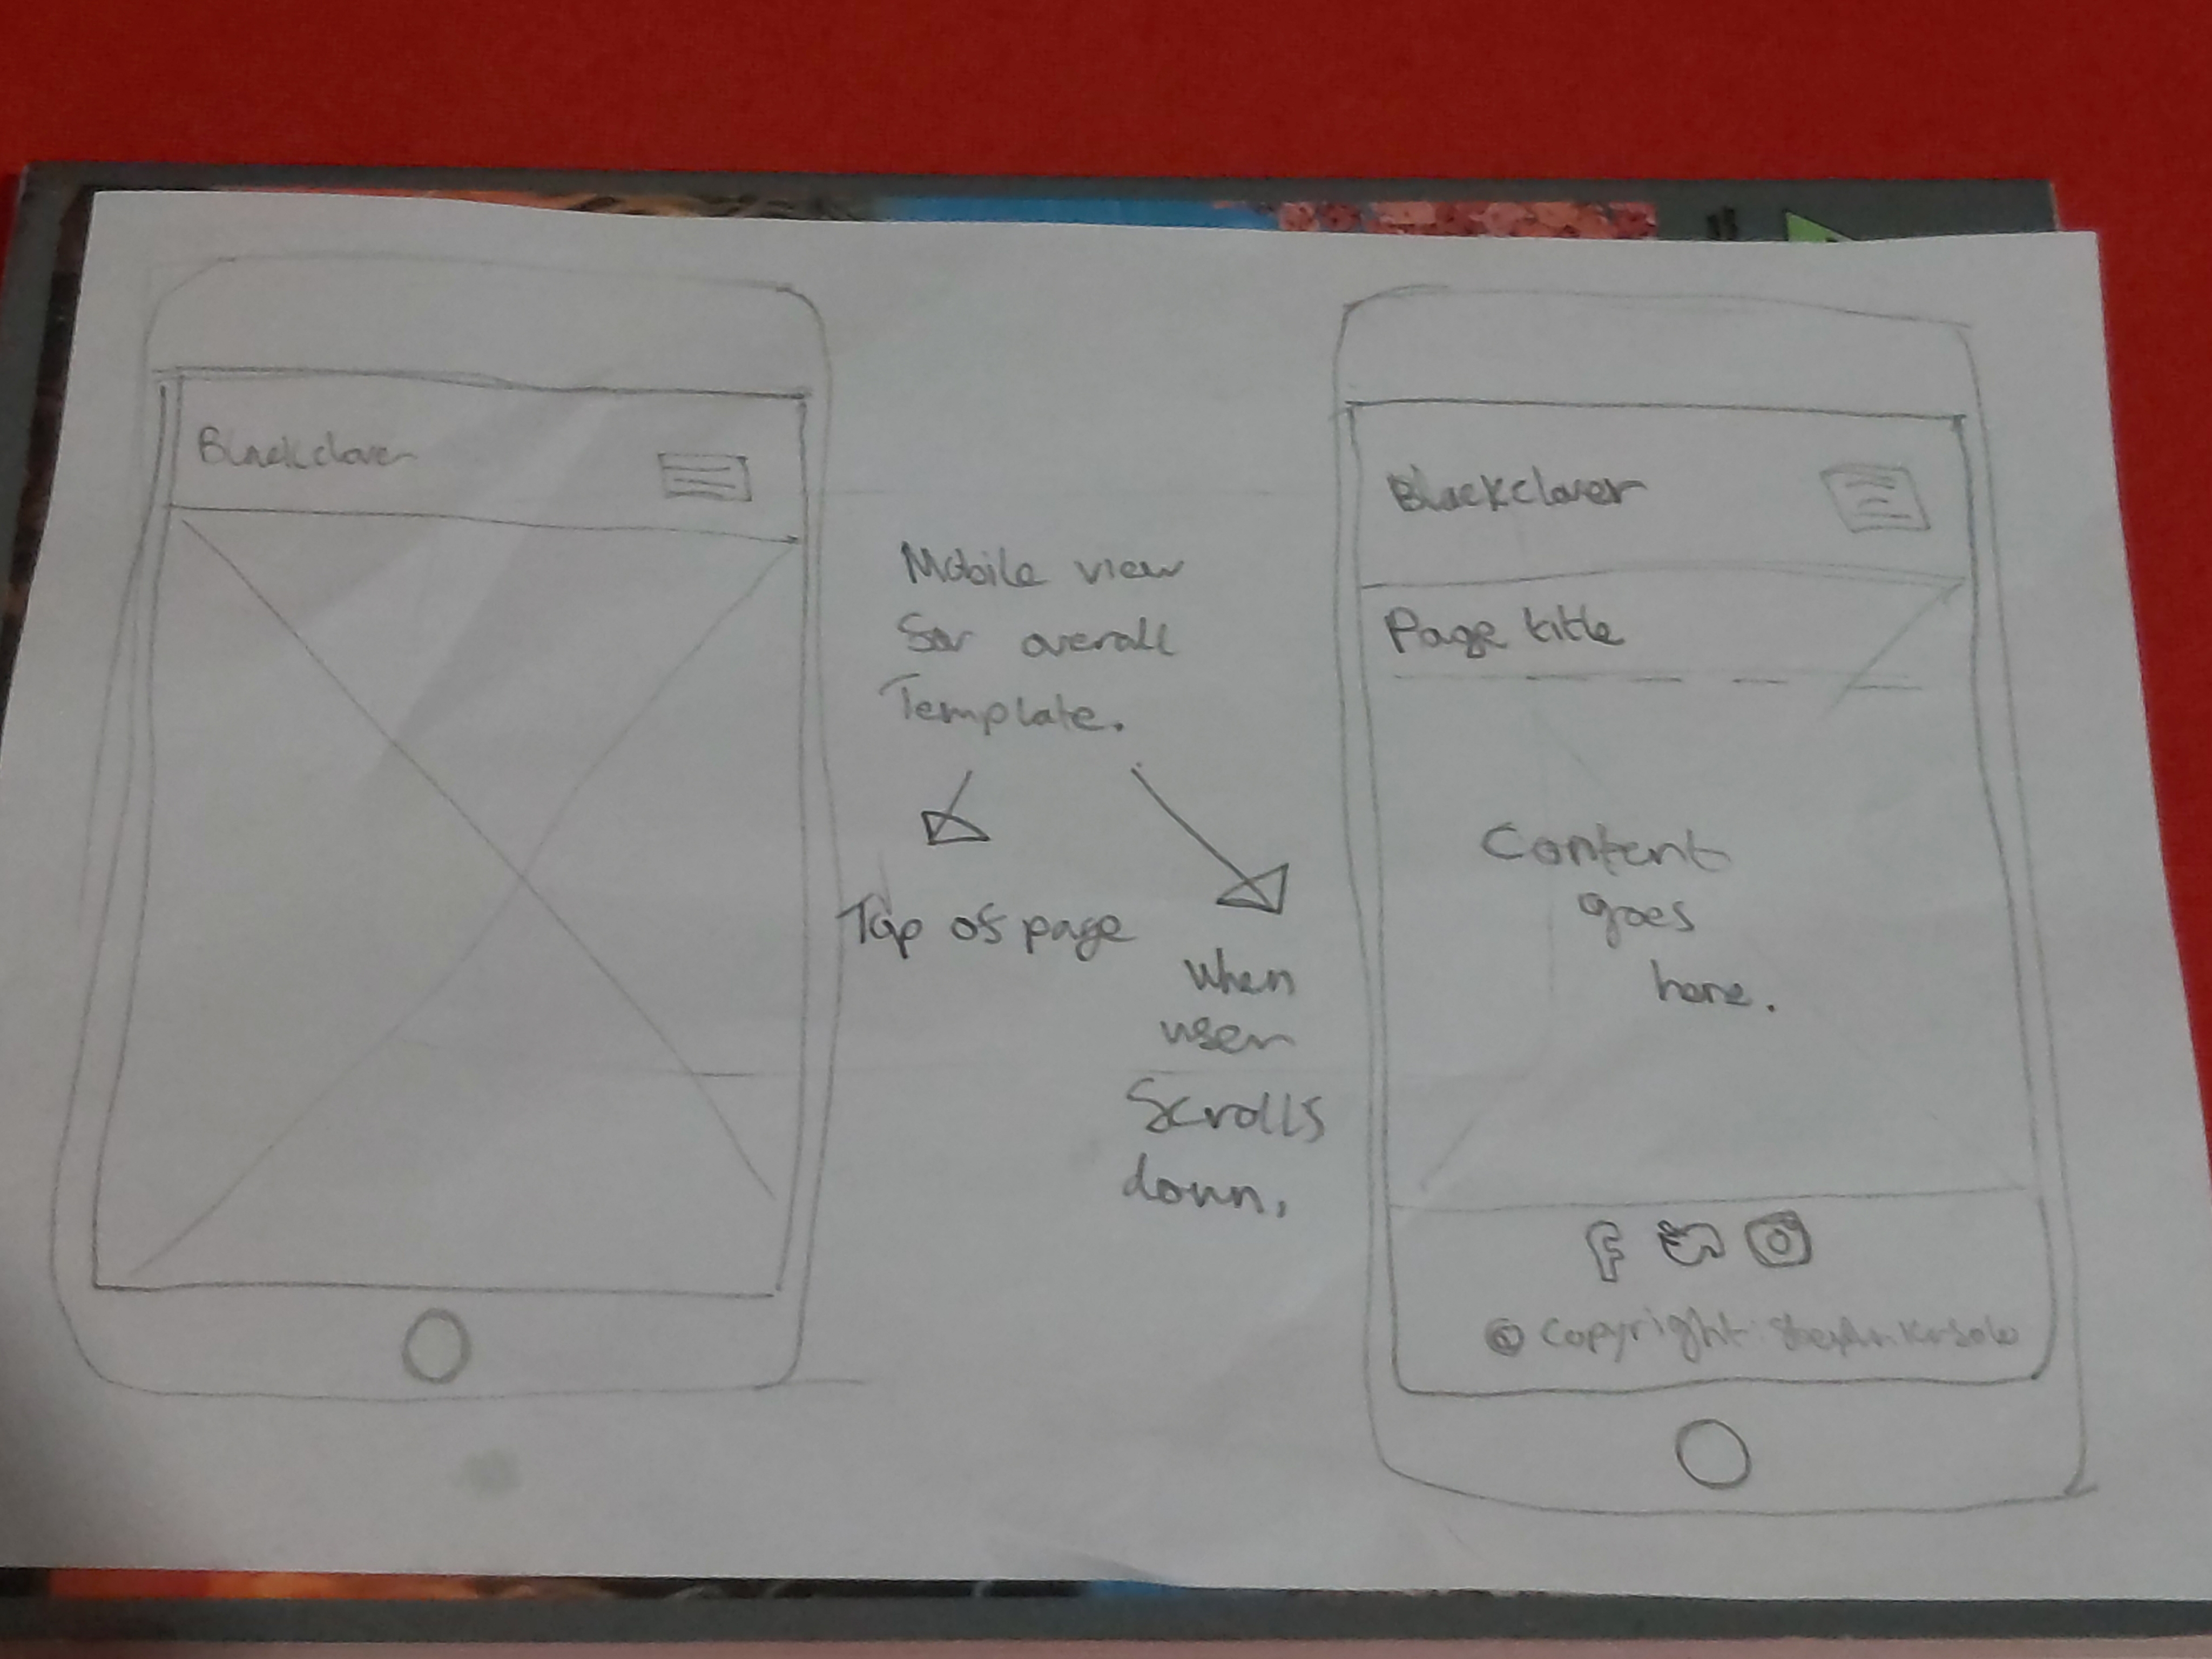 Blackclover
Mobile view
for overall
Template.
Top of page
When
user
Scrolls
down.
Blackclover
Page title
Content
goes
here.
© Copyright